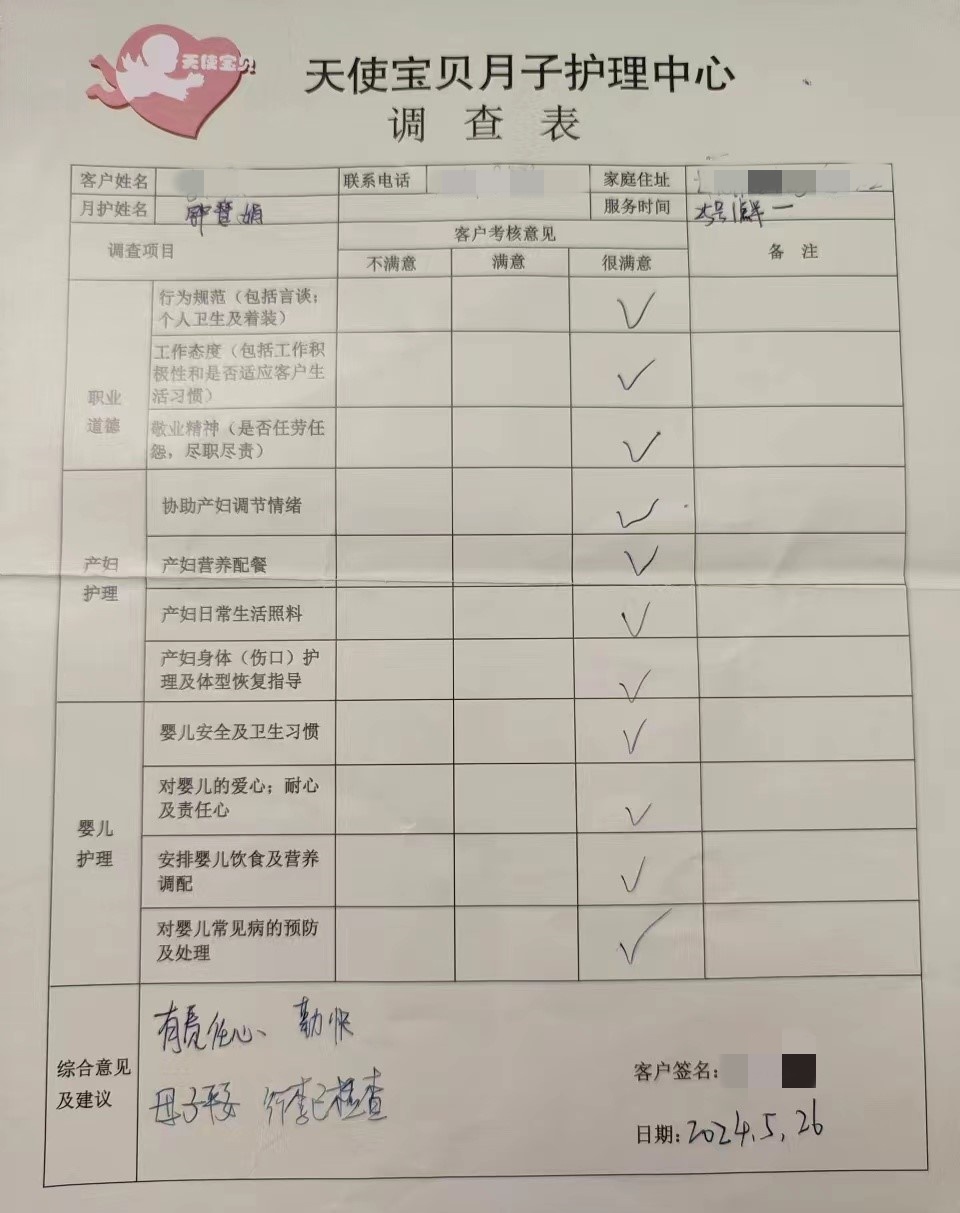 天使宝贝
天使宝贝月子护理中心
调查表
客户姓名 联系电话 家庭住址
月护姓名 钟慧娟 服务时间
调查项目 客户考核意见 备注
不满意 满意 很满意
职业道德
行为规范（包括言谈；
个人卫生及着装） ✓
工作态度（包括工作积
极性和是否适应客户生
活习惯） ✓
敬业精神（是否任劳任
怨，尽职尽责） ✓
产妇护理
协助产妇调节情绪 ✓
产妇营养配餐 ✓
产妇日常生活照料 ✓
产妇身体（伤口）护
理及体型恢复指导 ✓
婴儿护理
婴儿安全及卫生习惯 ✓
对婴儿的爱心；耐心
及责任心 ✓
安排婴儿饮食及营养
调配 ✓
对婴儿常见病的预防
及处理 ✓
综合意见
及建议
有责任心、勤快
母子平安 行李已检查
客户签名：
日期：2024.5.26